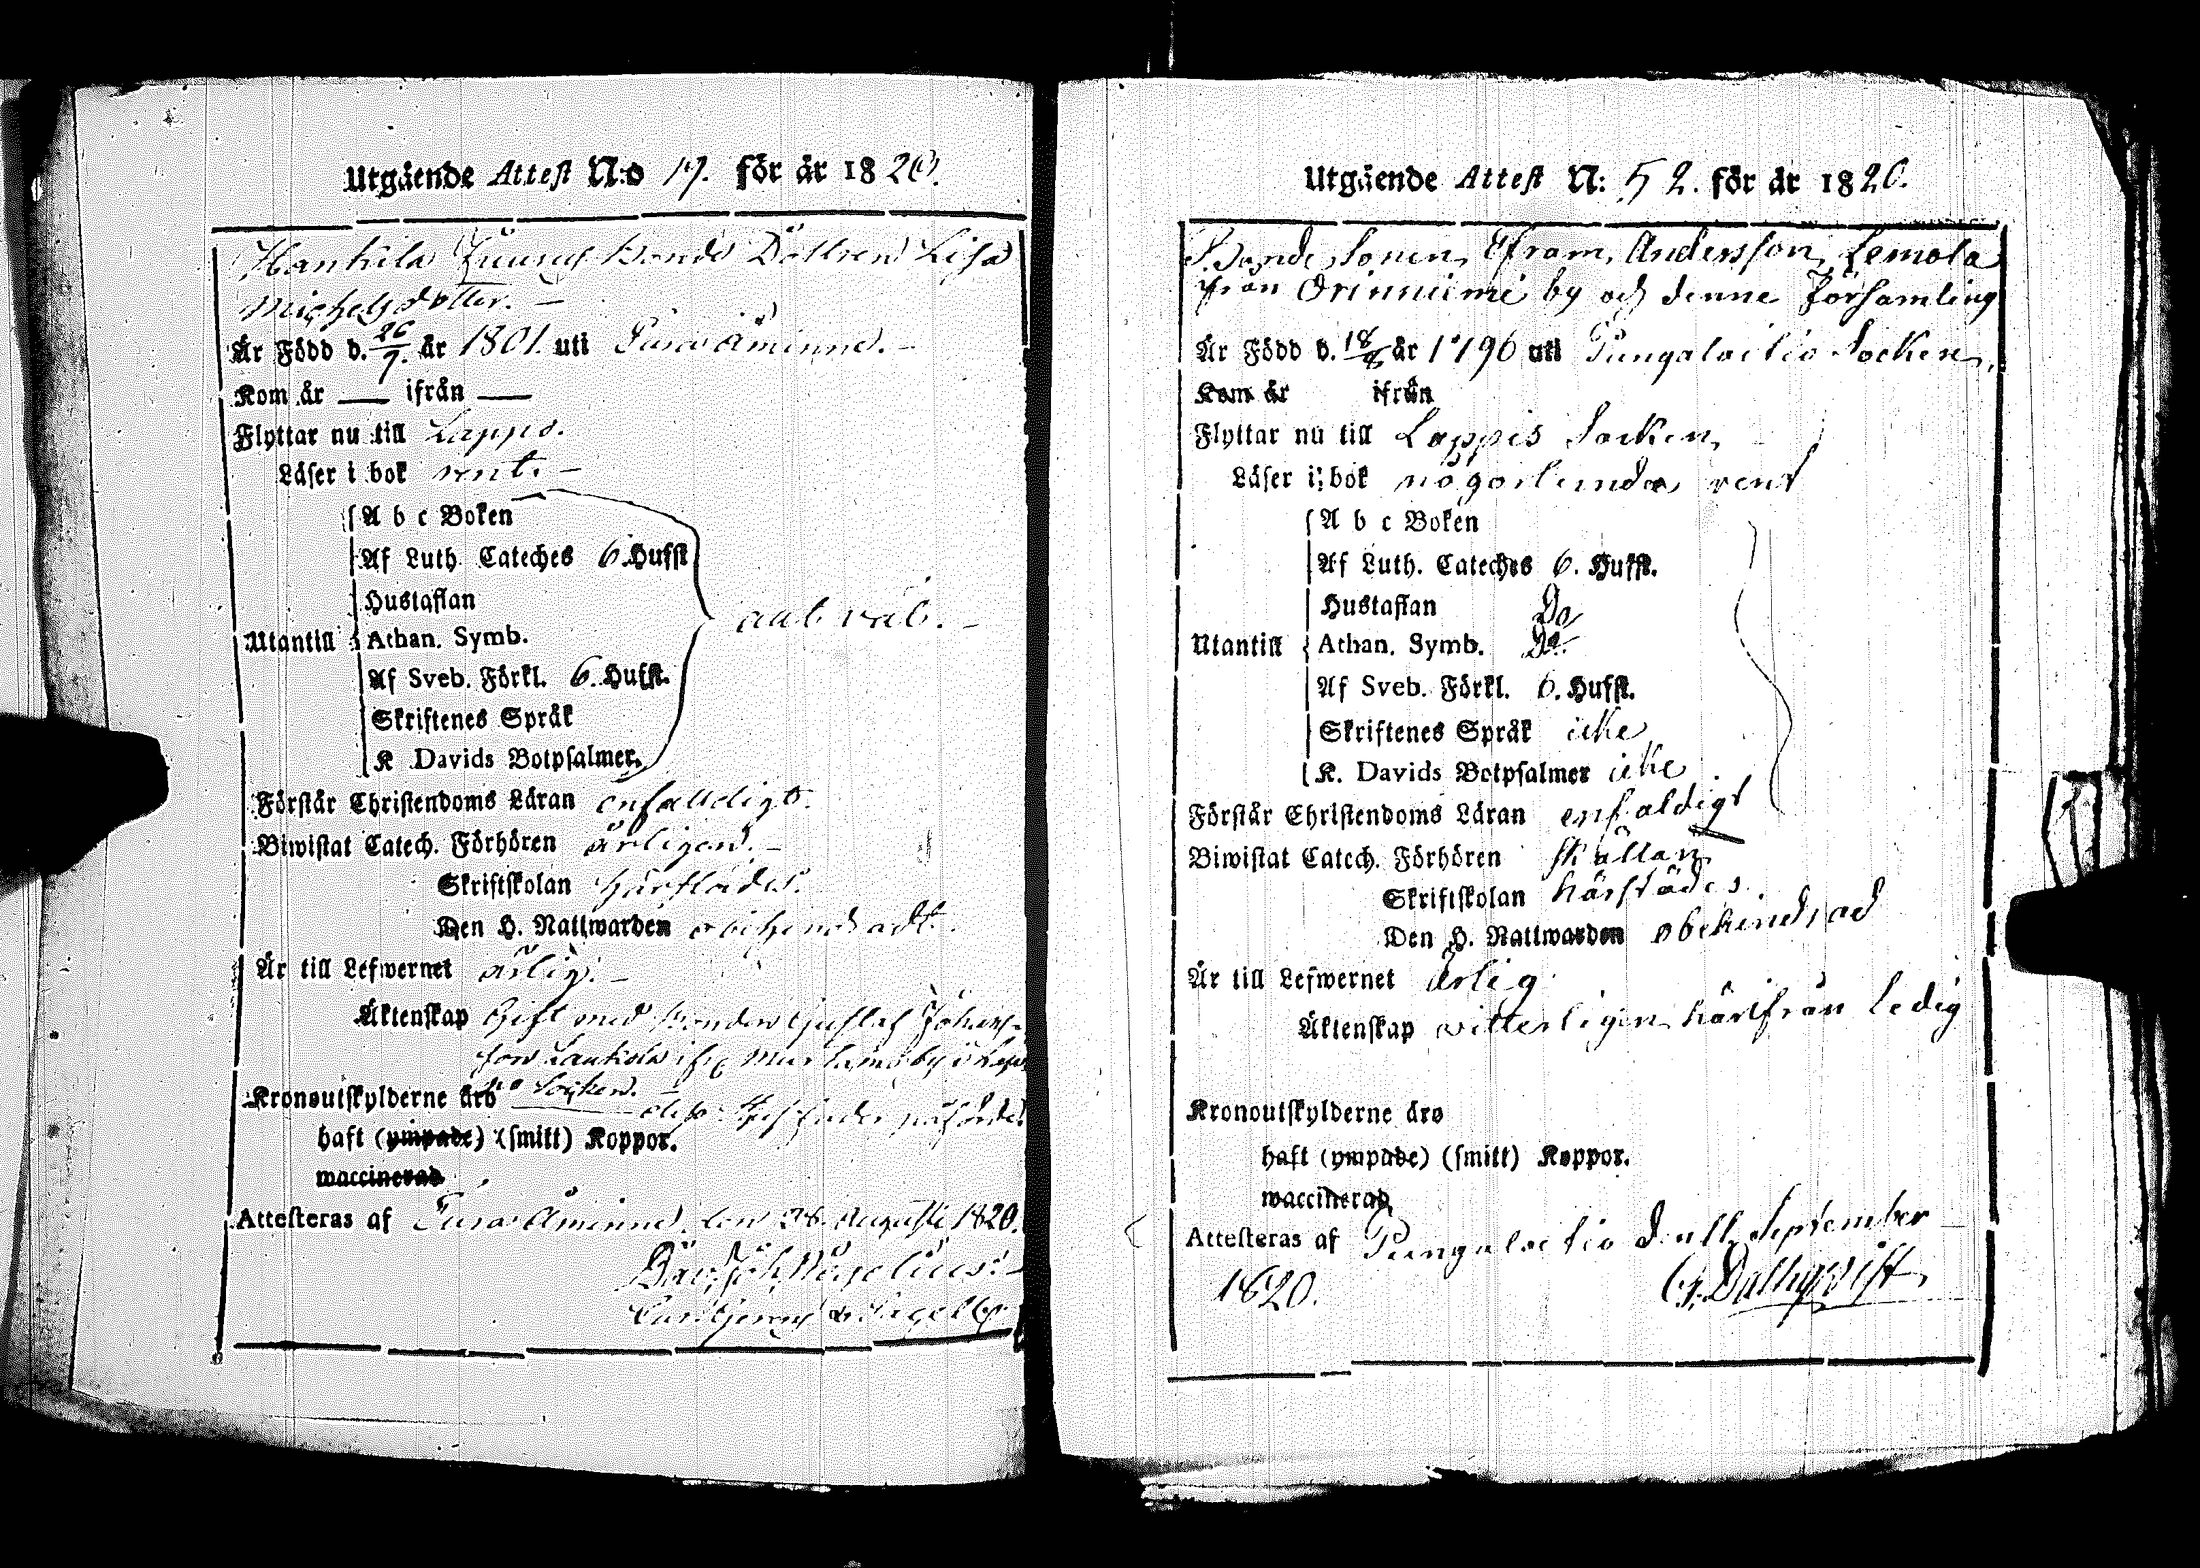 Utgående Attest N:o 17. för år 1820.
Hanhila Juuse Bonde Dottren Lisa
Michelsdotter. —
Är Född d. 26/7. år 1801. uti Åminne. —
Kom år — ifrån —
Flyttar nu till Lappo.
Läser i bok rent. —
A b c Boken
Af Luth. Cateches 6. Hufst
Hustaflan
Utantill Athan. Symb. allt väl. —
Af Sveb. Förkl. 6. Hufst.
Skriftenes Språk
K. Davids Botpsalmer.
Förstår Christendoms Läran enfaldigt.
Biwistat Catech. Förhören årligen. —
Skriftskolan härstädes.
Den H. Nattwarden obehindradt.
Är till Lefwernet ärlig. —
Äktenskap Gift med Bonden Gustaf Johans-
son ifr. by i
Kronoutskylderne äro Socken. —
haft (ympade) (smitt) Koppor.
waccinerad
Attesteras af Åminne, den 28. Augusti 1820.
Utgående Attest N: 52. för år 1820.
Bonde Sonen, Efram, Andersson, Lemola
från Orinniemi by och denne Församling
Är Född d. 18/6 år 1796 uti Pungalaitio Socken,
Kom år ifrån
Flyttar nu till Loppis Socken,
Läser i bok någorlunda rent
A b c Boken
Af Luth. Cateches 6. Hufst.
Hustaflan Do
Utantill Athan. Symb. Do
Af Sveb. Förkl. 6. Hufst.
Skriftenes Språk icke
K. Davids Botpsalmer icke
Förstår Christendoms Läran enfaldigt
Biwistat Catech. Förhören sällan
Skriftskolan härstädes.
Den H. Nattwarden obehindrad
Är till Lefwernet ärlig
Äktenskap witterligen härifrån ledig
Kronoutskylderne äro
haft (ympade) (smitt) Koppor.
waccinerad
Attesteras af Pungalaitio d. 11 September
1820. G. Dalhqvist